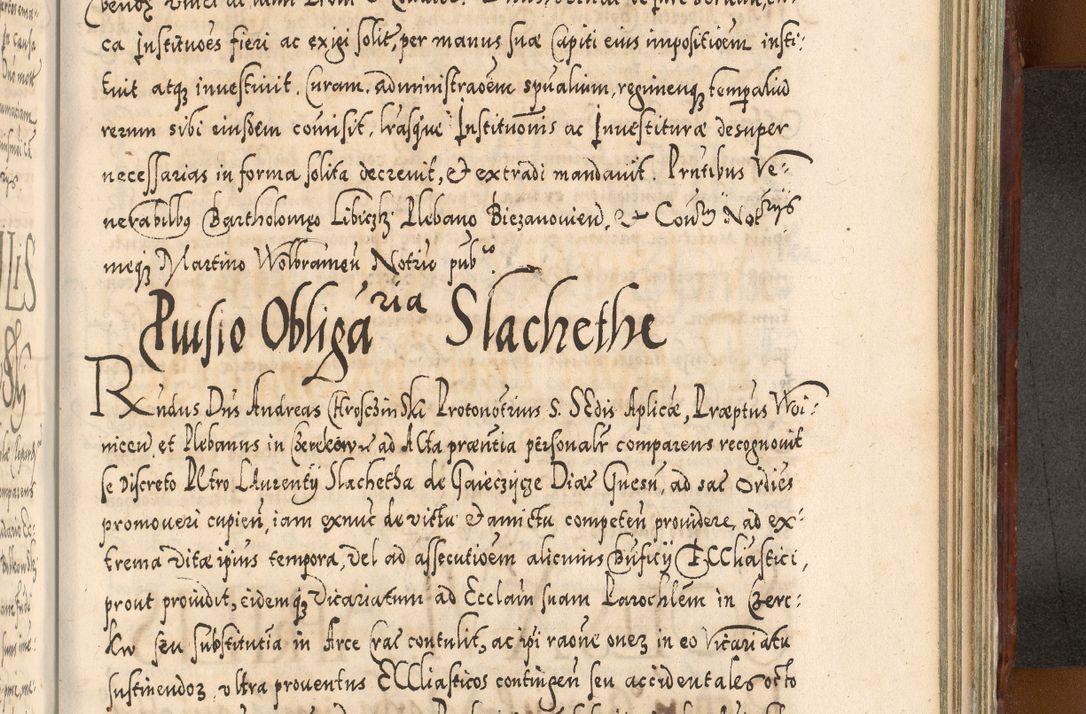 ca Institu͞oes fieri ac exigi solit, per manus suæ Capiti eius impositio͞em insti-
tuit atq3 investivit. Curam, administra͞oem sp͞ualium, regimenq3 temp͞aliu͞
rerum sibi eiusdem com͞isit, l͞rasque Institu͞onis ac Investituræ desuper
necessarias in forma solita decrevit, et extradi mandavit. Pr͞ntibus Ve-
nerabilibq Bartholomeo Plebano Biezanovien͞, & Con͞ Not͞rijs
meq3 Martino Wolbramen͞ No͞trio pub͞co.
Pruisio Obligaria Slachethe
R͞undus D͞ns Andreas Chroschinski Protonotrius S. S͞edis Ap͞licæ, Præp͞tus Woi-
nicen͞ et Plebanus in Czerekow ad Acta præn͞tia personal͞r comparens recognovit
se Discreto P͞tro Laurentij Slachetha de Diæc Gnesn͞, ad sac Ord͞ies
promoveri cupien͞, iam exnu͞c de victu et amictu competen͞ providere, ad ex-
trema vitæ ip͞ius tempora, vel ad assecutio͞em alicuius B͞nficij Eccl͞iastici,
prout providit, eidemq3 Vicariatum ad Eccl͞am suam Paroch͞lem in Czerc-
kw seu substitutia in Arce contulit, ac ip͞i ra͞one one͞ in eo Vicariatu
sustinendo3, ultra proventus Eccl͞iasticos contingen͞ seu accidentales octo